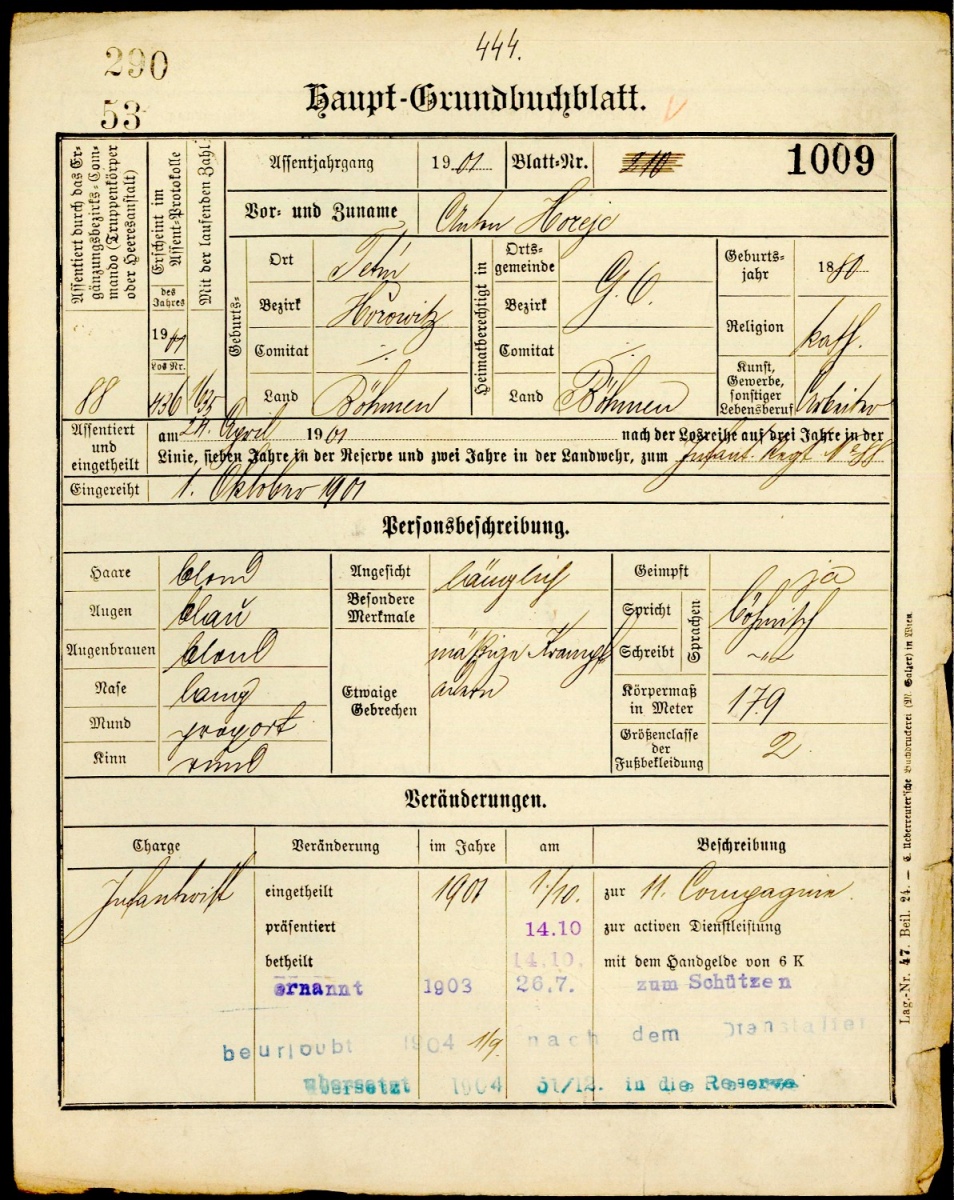 290
444.
53
Haupt-Grundbuchblatt.
Assentiert durch das Ergänzungsbezirks-Commando (Truppenkörper oder Heeresanstalt)
88
Erscheint im Assent-Protokolle
des Jahres
1901
Los Nr.
436
Mit der laufenden Zahl
Assentjahrgang 1901 Blatt-Nr. 1009
Vor- und Zuname Anton Horejc
Geburts-
Ort Tetín
Bezirk Hořowitz
Comitat ./.
Land Böhmen
Heimatberechtigt in
Ortsgemeinde G. G.
Bezirk
Comitat ./.
Land Böhmen
Geburtsjahr 1880
Religion kath.
Kunst, Gewerbe, sonstiger Lebensberuf Arbeiter
Assentiert und eingetheilt
am 24. April 1901 nach der Losreihe auf drei Jahre in der
Linie, sieben Jahre in der Reserve und zwei Jahre in der Landwehr, zum Infant. Regt. No 88
Eingereiht 1. Oktober 1901
Personsbeschreibung.
Haare blond
Augen blau
Augenbrauen blond
Nase lang
Mund proport
Kinn rund
Angesicht länglich
Besondere Merkmale
Etwaige Gebrechen mäßige Krampfadern
Geimpft ja
Spricht böhmisch
Schreibt
Sprachen
Körpermaß in Meter 179
Größenclasse der Fußbekleidung 2
Veränderungen.
Charge Veränderung im Jahre am Beschreibung
Infanterist eingetheilt 1901 1./10. zur 11. Compagnie.
präsentiert 14.10 zur activen Dienstleistung
betheilt 14.10. mit dem Handgelde von 6 K
ernannt 1903 26.7. zum Schützen
beurlaubt 1904 1/9 nach dem Dienstalter
übersetzt 1904 31/12. in die Reserve
Lag.-Nr. 47. Beil. 24. — C. Ueberreuter'sche Buchdruckerei (M. Salzer) in Wien.